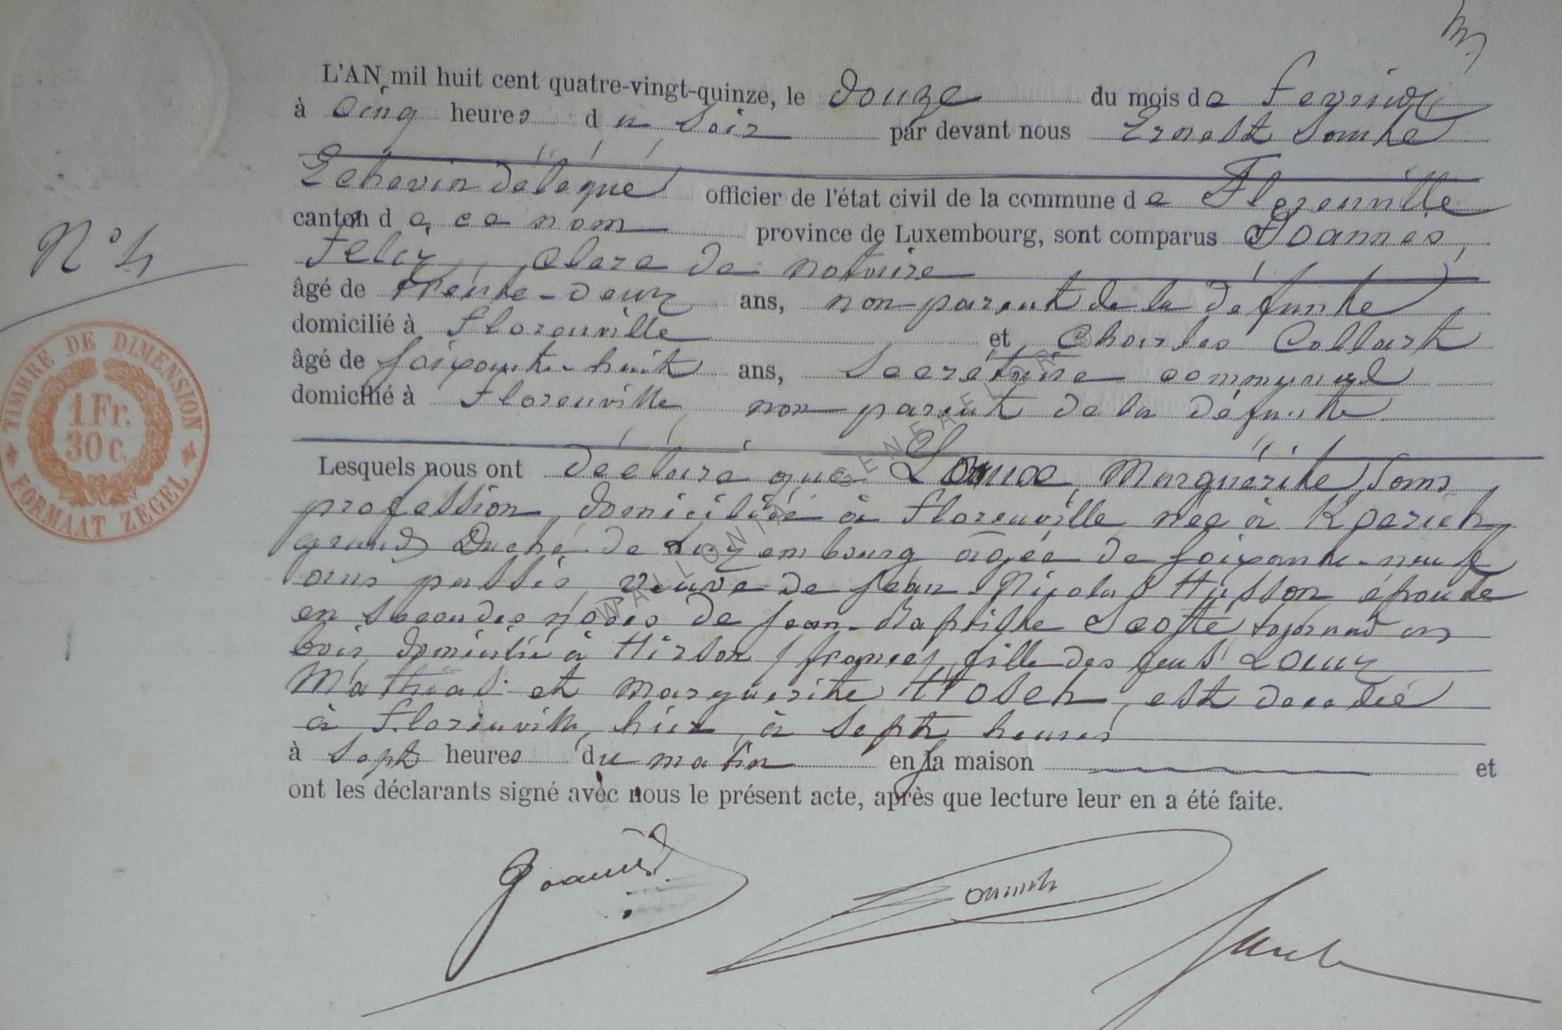 L'AN mil huit cent quatre-vingt-quinze, le douze du mois de Fevrier
à cinq heures du soir par devant nous Ernest
Echevin délégué officier de l'état civil de la commune de Florenville
canton de ce nom province de Luxembourg, sont comparus Joannes,
Felix, clerc de notaire
âgé de trente-deux ans, non parent de la défunte
domicilié à Florenville et Charles Collart
âgé de soixante-huit ans, secrétaire communal
domicilié à Florenville, non parent de la défunte
N° 4
TIMBRE DE DIMENSION
1 Fr.
30 C.
FORMAAT ZEGEL
Lesquels nous ont déclaré que Louxe, Marguérite, sans
profession, domiciliée à Florenville née à
grand Duché de Luxembourg âgée de soixante-neuf
ans passés, veuve de Jean Nicolas Husson épouse
en secondes noces de Jean-Baptiste en
bois domicilié à Hirson (france), fille des feus
Mathias et Marguerite Hosch, est decedée
à Florenville, hier, à sept heures
à sept heures du matin en sa maison et
ont les déclarants signé avec nous le présent acte, après que lecture leur en a été faite.
Joannes